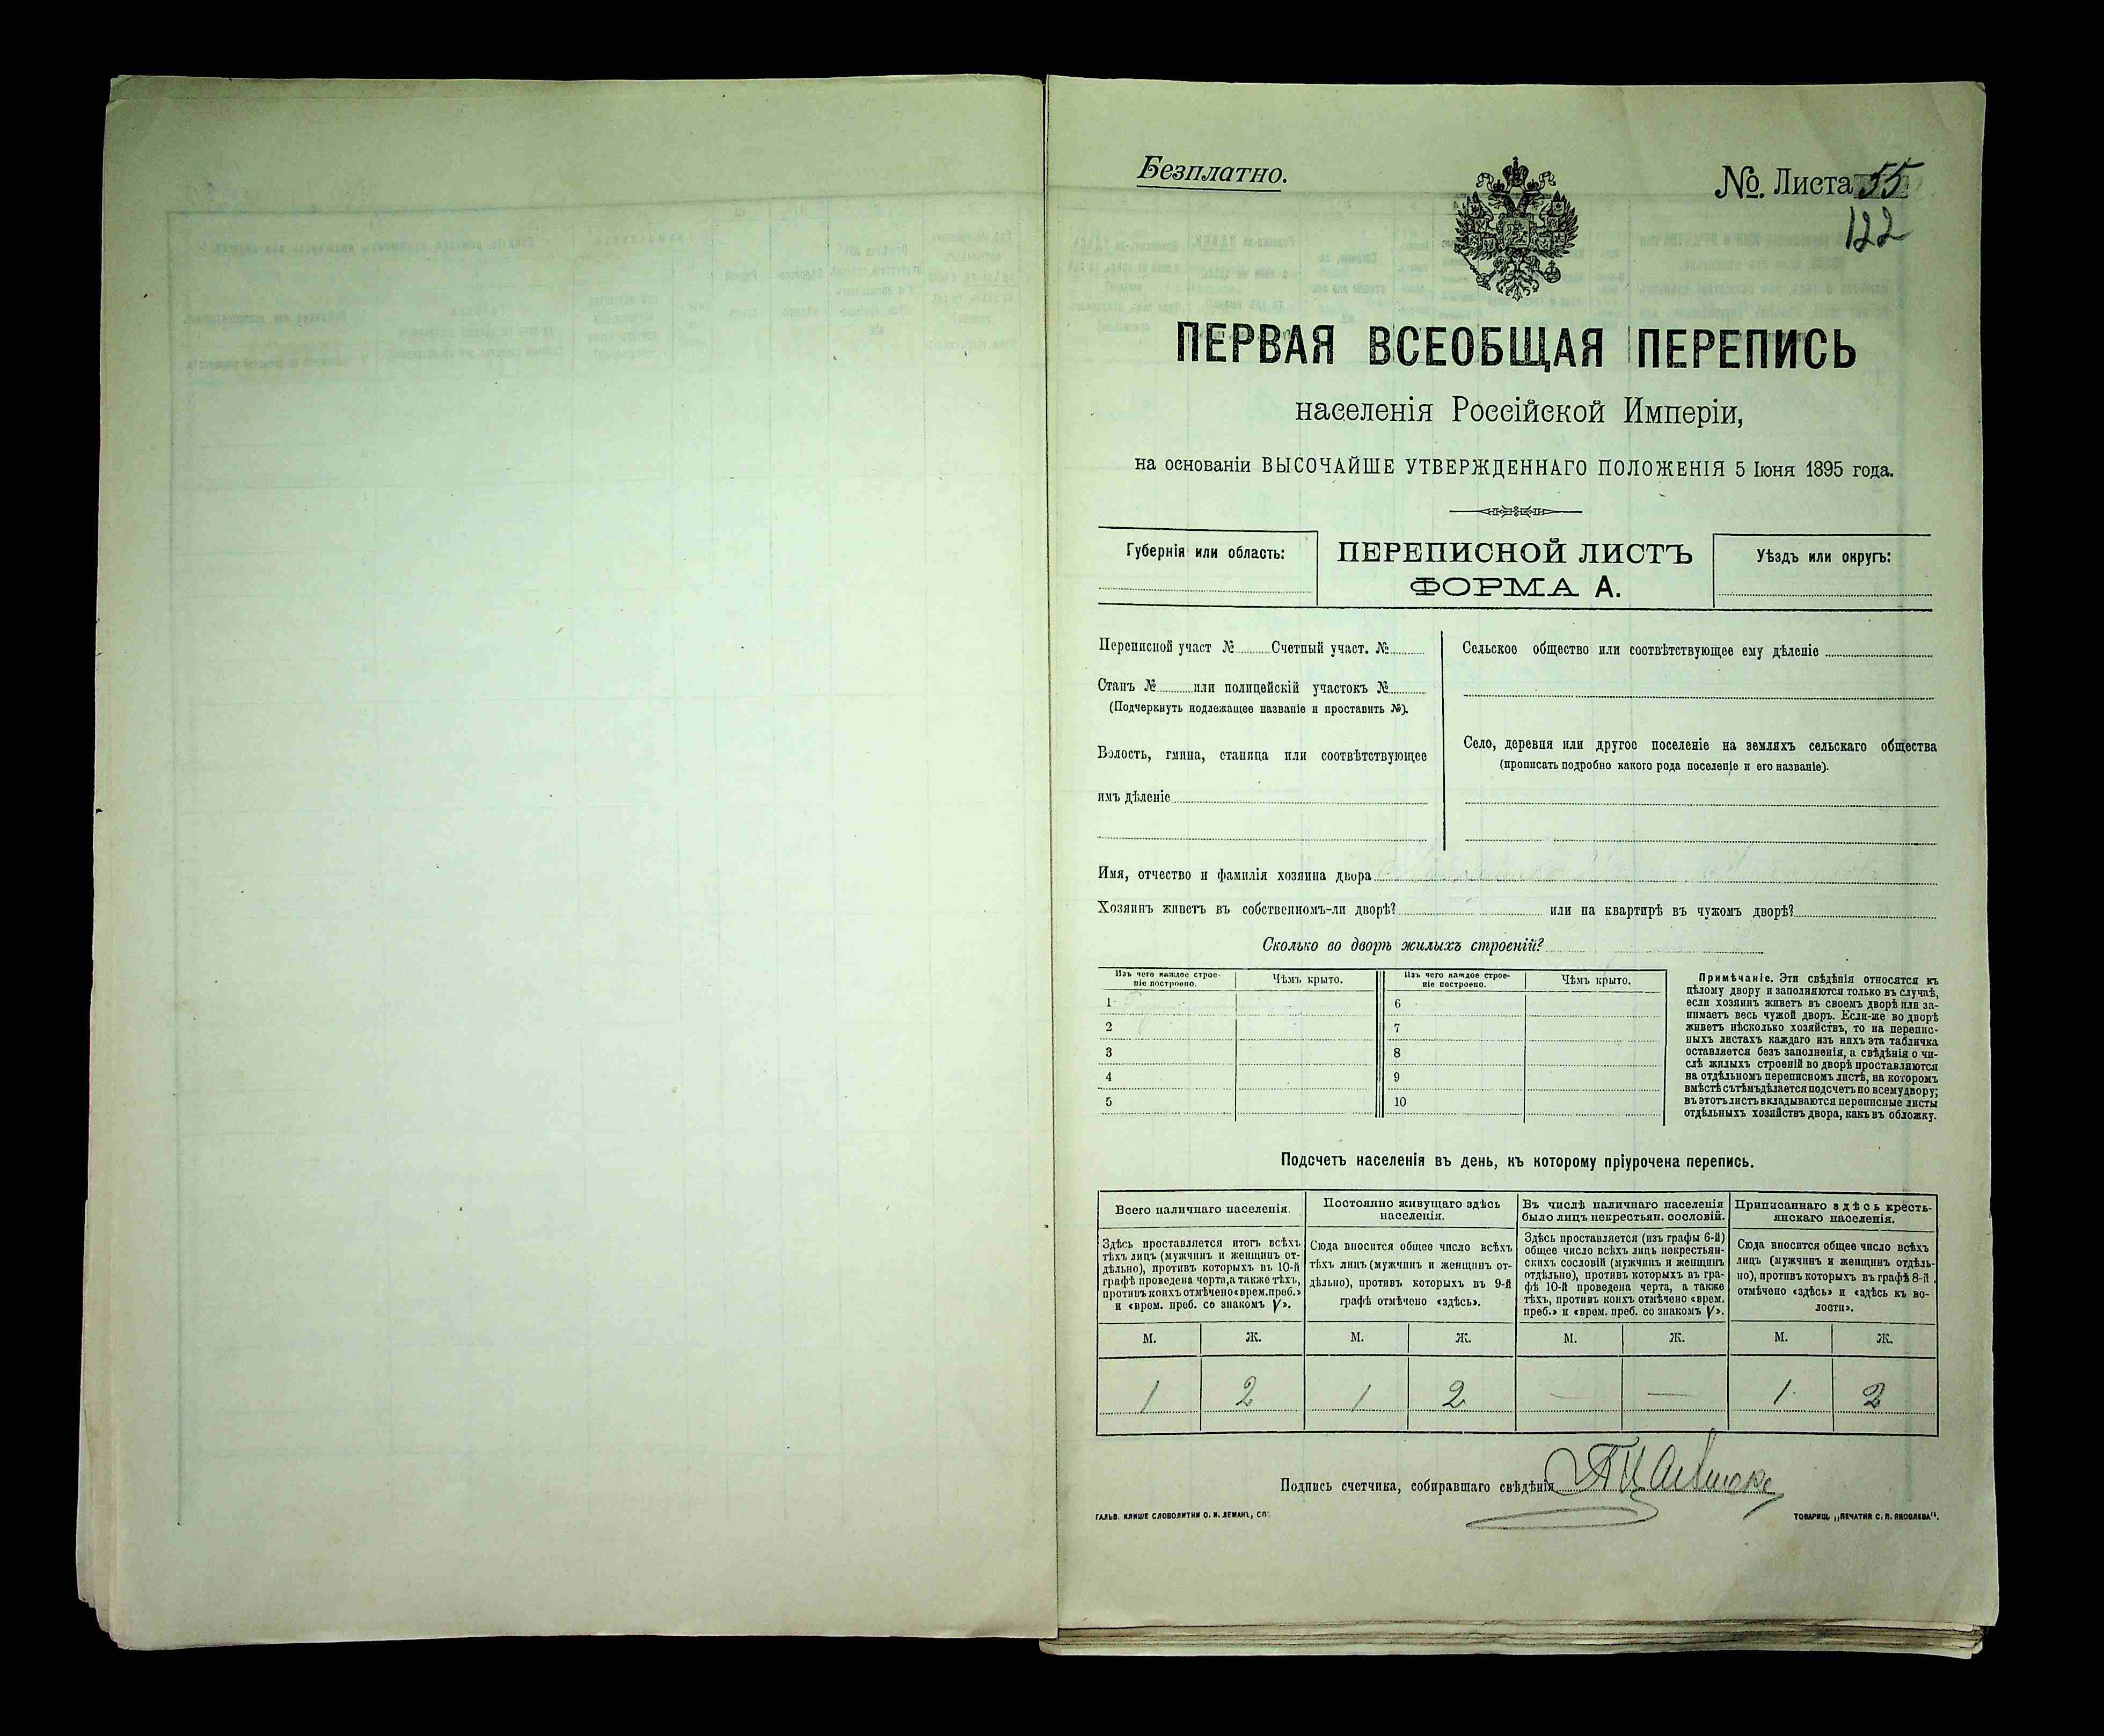 Безплатно.
№. Листа 55
122
ПЕРВАЯ ВСЕОБЩАЯ ПЕРЕПИСЬ
населенія Россійской Имперіи,
на основаніи ВЫСОЧАЙШЕ УТВЕРЖДЕННАГО ПОЛОЖЕНІЯ 5 Іюня 1895 года.
Губернія или область:
ПЕРЕПИСНОЙ ЛИСТЪ
ФОРМА А.
Уѣздъ или округъ:
Переписной участ № Счетный участ. №
Станъ № или полицейскій участокъ №
(Подчеркнуть подлежащее названіе и проставить №).
Волость, гмина, станица или соотвѣтствующее
имъ дѣленіе
Сельское общество или соотвѣтствующее ему дѣленіе
Село, деревня или другое поселеніе на земляхъ сельскаго общества
(прописать подробно какого рода поселеніе и его названіе).
Имя, отчество и фамилія хозяина двора
Хозяинъ живетъ въ собственномъ-ли дворѣ? или на квартирѣ въ чужомъ дворѣ?
Сколько во дворѣ жилыхъ строеній?
Изъ чего каждое строе-
ніе построено.
Чѣмъ крыто.
Изъ чего каждое строе-
ніе построено.
Чѣмъ крыто.
1 6
2 7
3 8
4 9
5 10
Примѣчаніе. Эти свѣдѣнія относятся къ
цѣлому двору и заполняются только въ случаѣ,
если хозяинъ живетъ въ своемъ дворѣ или за-
нимаетъ весь чужой дворъ. Если-же во дворѣ
живетъ нѣсколько хозяйствъ, то на перепис-
ныхъ листахъ каждаго изъ нихъ эта табличка
оставляется безъ заполненія, а свѣдѣнія о чи-
слѣ жилыхъ строеній во дворѣ проставляются
на отдѣльномъ переписномъ листѣ, на которомъ
вмѣстѣ съ тѣмъ дѣлается подсчетъ по всему двору;
въ этотъ листъ вкладываются переписные листы
отдѣльныхъ хозяйствъ двора, какъ въ обложку.
Подсчетъ населенія въ день, къ которому пріурочена перепись.
Всего наличнаго населенія.
Здѣсь проставляется итогъ всѣхъ
тѣхъ лицъ (мужчинъ и женщинъ от-
дѣльно), противъ которыхъ въ 10-й
графѣ проведена черта, а также тѣхъ,
противъ коихъ отмѣчено «врем. преб.»
и «врем. преб. со знакомъ V».
Постоянно живущаго здѣсь
населенія.
Сюда вносится общее число всѣхъ
тѣхъ лицъ (мужчинъ и женщинъ от-
дѣльно), противъ которыхъ въ 9-й
графѣ отмѣчено «здѣсь».
Въ числѣ наличнаго населенія
было лицъ некрестьян. сословій.
Здѣсь проставляется (изъ графы 6-й)
общее число всѣхъ лицъ некрестьян-
скихъ сословій (мужчинъ и женщинъ
отдѣльно), противъ которыхъ въ гра-
фѣ 10-й проведена черта, а также
тѣхъ, противъ коихъ отмѣчено «врем.
преб.» и «врем. преб. со знакомъ V».
Приписаннаго здѣсь кресть-
янскаго населенія.
Сюда вносится общее число всѣхъ
лицъ (мужчинъ и женщинъ отдѣль-
но), противъ которыхъ въ графѣ 8-й
отмѣчено «здѣсь» и «здѣсь къ во-
лости».
М. Ж. М. Ж. М. Ж. М. Ж.
1 2 1 2 — — 1 2
Подпись счетчика, собиравшаго свѣдѣнія
ГАЛЬВ. КЛИШЕ СЛОВОЛИТНИ О. И. ЛЕМАНЪ, СПБ.
ТОВАРИЩ. „ПЕЧАТНЯ С. П. ЯКОВЛЕВА".